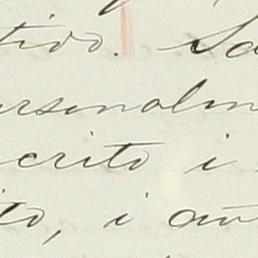 tido. Sa
ersonalm
crito i
to, i aun